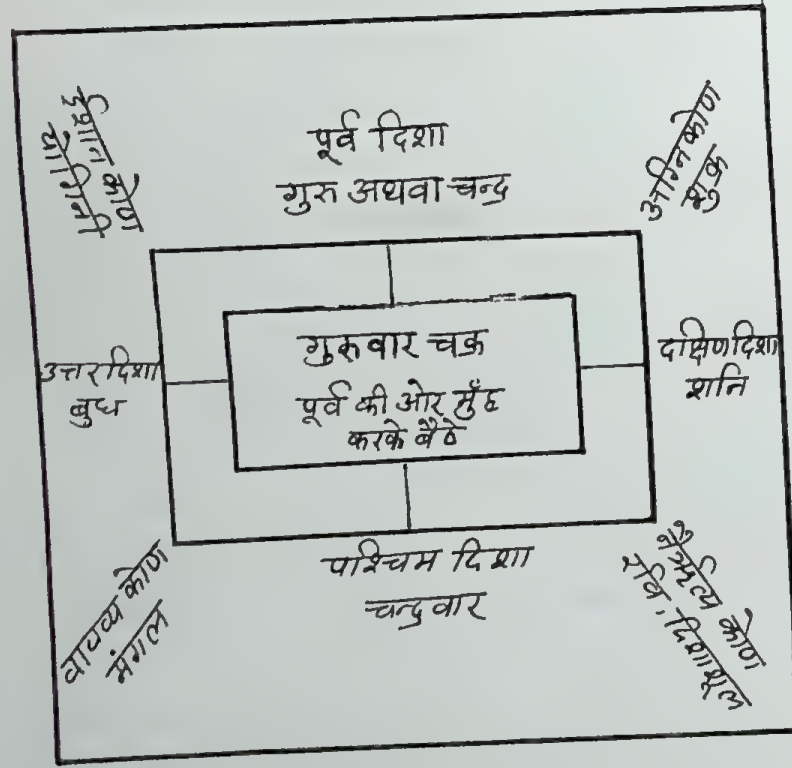 ईशान कोण
योगिनी
पूर्व दिशा
गुरु अथवा चन्द्र
अग्निकोण
शुक्र
उत्तरदिशा
बुध
गुरुवार चक्र
पूर्व की ओर मुँह
करके बैठे
दक्षिणदिशा
शनि
वायव्य कोण
मंगल
पश्चिम दिशा
चन्द्रवार
नैर्ऋत्य कोण
रवि, दिशाशूल